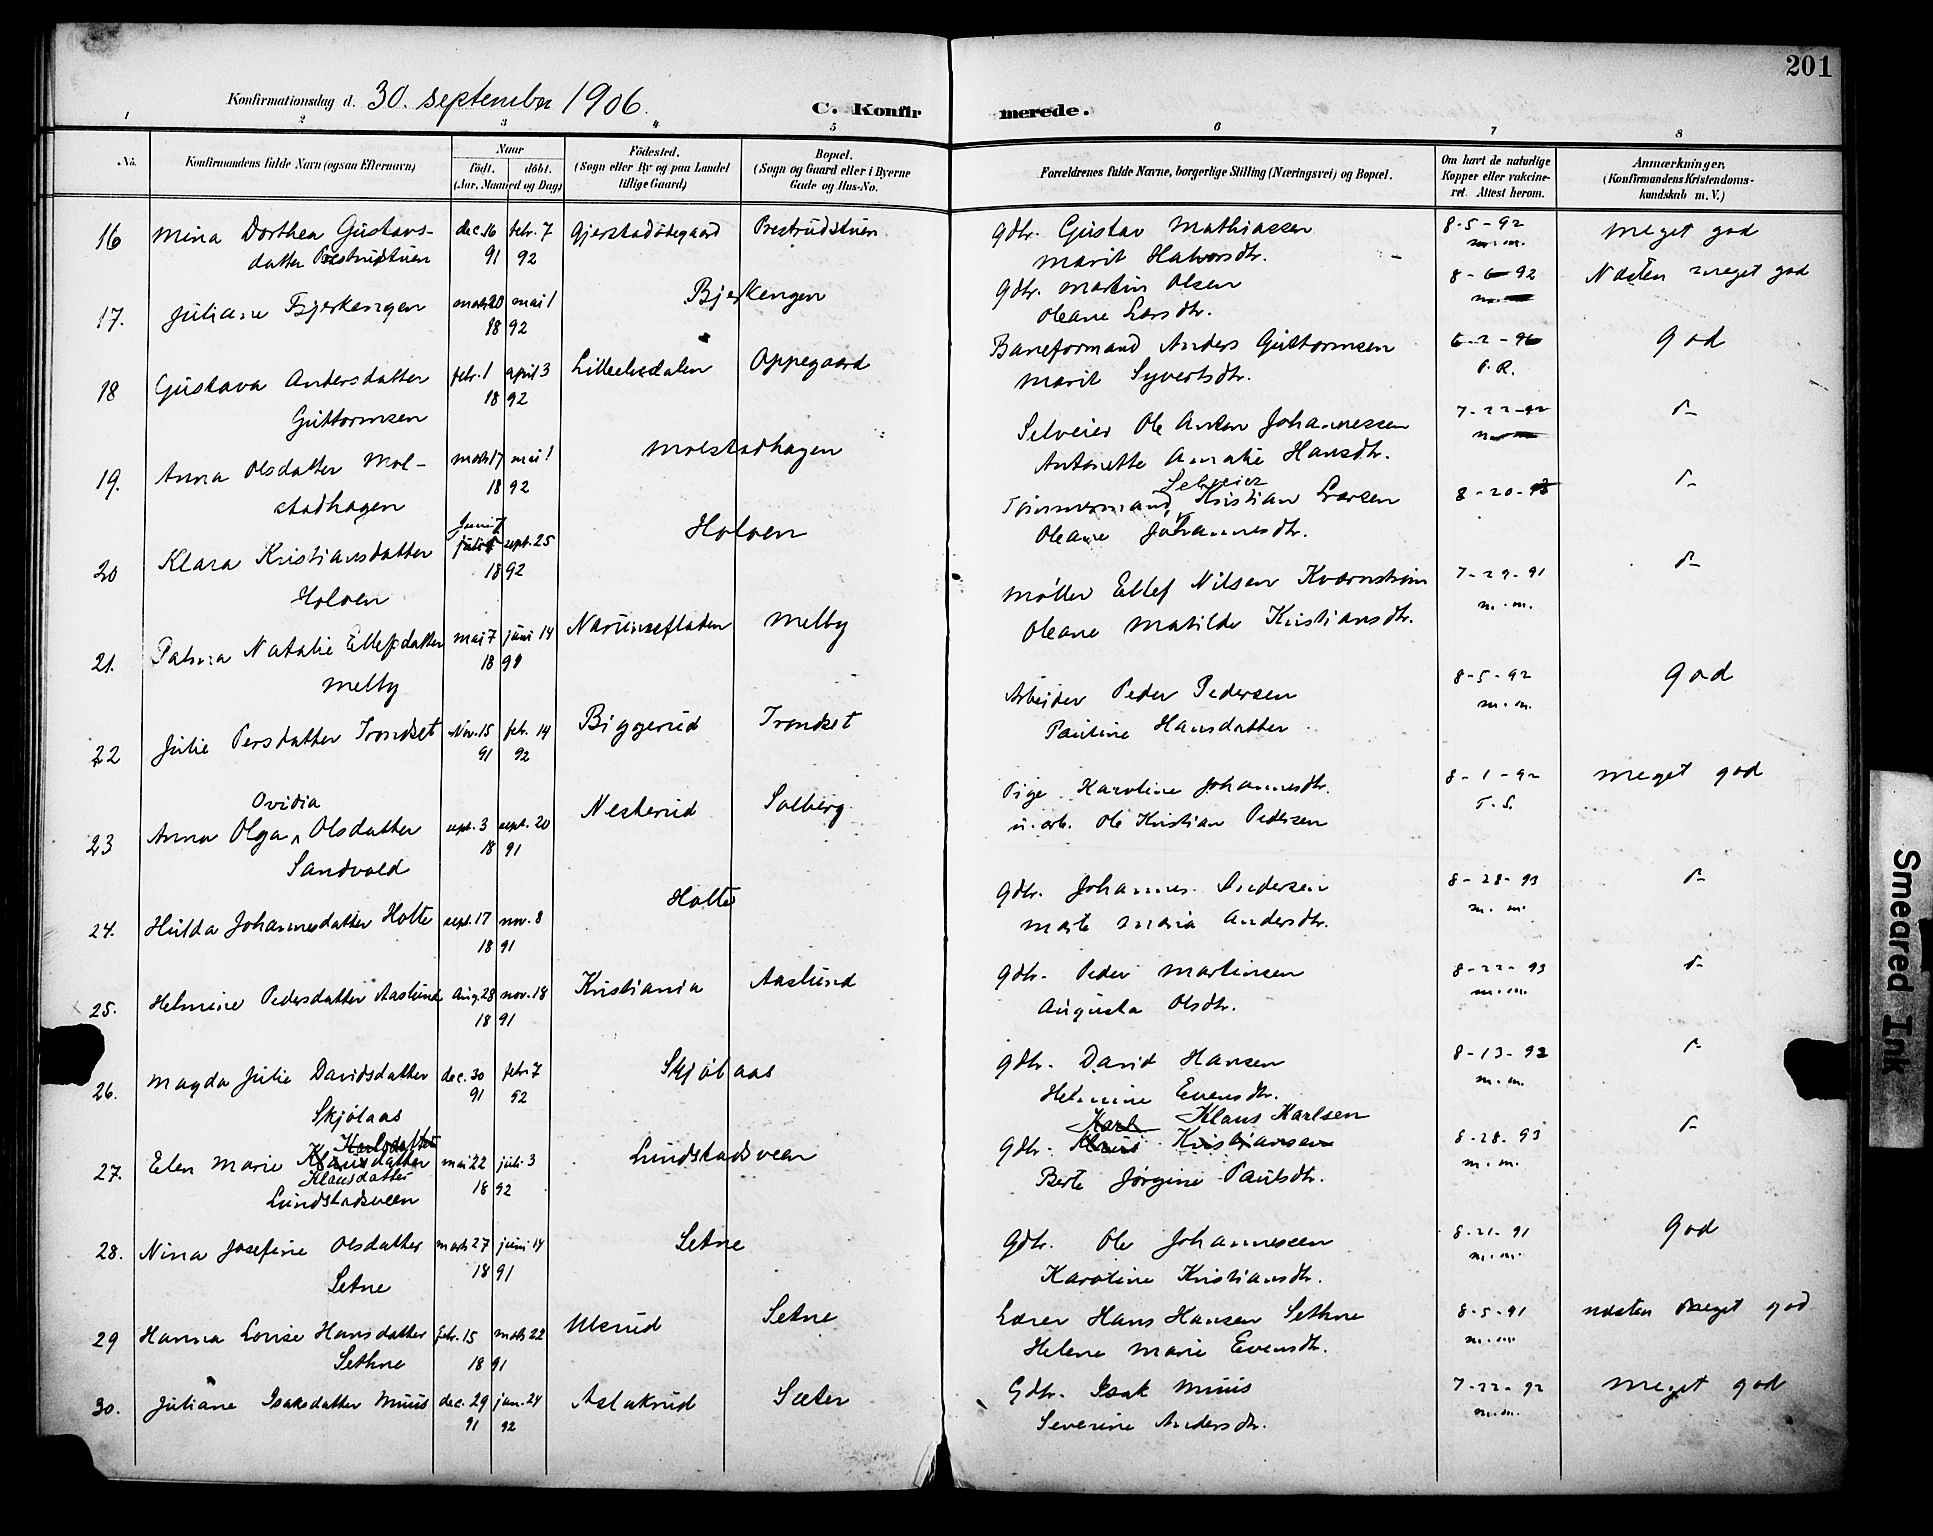 201
Konfirmationsdag d. 30. september 1906.
C. Konfirmerede.
1 2 3 4 5 6 7 8
No. Konfirmandens fulde Navn (ogsaa Efternavn) Naar Fødested. Bopæl. Forældrenes fulde Navne, borgerlige Stilling (Næringsvei) og Bopæl. Om havt de naturlige Anmærkninger.
født. døbt. (Sogn eller By og paa Landet (Sogn og Gaard eller i Byerne Kopper eller vakcine- (Konfirmandens Kristendoms-
(Aar, Maaned og Dag) tillige Gaard) Gade og Hus-No. ret. Attest herom. kundskab m. V.)
16 Mina Dorthea Gustavs- dec. 16 febr. 7 Gjerstadødegaard Prestrudstuen Gdbr. Gustav Mathiassen 8-5-92 Meget god
datter Prestrudstuen 91 92 Marit Halvorsdtr. m.m.
17. Juliane Bjerkengen marts 20 mai 1 Bjerkengen Gdbr. Martin Olsen 8-6-92 Næsten meget god
18 92 Oleane Larsdtr.
18 Gustava Andersdatter febr. 1 april 3 Lilleelvedalen Oppegaard Baneformand Anders Guttormsen 6-2-96 God
Guttormsen 18 92 Marit Syvertsdtr.
19. Anna Olsdatter Mol- marts 17 mai 1 Molstadhagen Selveier Ole Anton Johannessen 7-22-92 d-
stadhagen 18 92 Antonette Amalie Hansdtr.
20 Klara Kristiansdatter Juni 7 sept. 25 Holoen Tømmermand, Selveier Kristian Larsen 8-20-93 d-
Holoen 18 92 Oleane Johannesdtr.
21. Palma Natalie Ellefsdatter mai 7 juni 14 Melby Møller Ellef Nilsen Kværnstrøm 7-29-91 d-
Melby 18 91 Oleane Matilde Kristiansdtr. m.m.
22 Julie Persdatter Trondset Nov. 15 febr. 14 Biggerud Trondset Arbeider Peder Pedersen 8-5-92 God
91 92 Pauline Hansdatter m.m.
23 Anna Olga Ovidia Olsdatter sept. 3 sept. 20 Nesterud Solberg Pige Karoline Johannesdtr. 8-1-92 Meget god
Sandvold 18 91 u. arb. Ole Kristian Pedersen T.S.
24. Hulda Johannesdatter Holte sept. 17 nov. 8 Holte Gdbr. Johannes Andersen 8-28-93 d-
18 91 Marte Maria Andersdtr. m.m.
25. Helmine Pedersdatter Aaslund Aug. 28 nov. 18 Kristiania Aaslund Gdbr. Peder Martinsen 8-22-93 d-
18 91 Augusta Olsdtr. m.m.
26. Magda Julie Davidsdatter dec. 30 febr. 7 Skjølaas Gdbr. David Hansen 8-13-92 d-
Skjølaas 91 92 Helmine Evensdtr. m.m.
27. Elen Marie Klausdatter mai 22 juli 3 Lundstadsveen Gdbr. Klaus Karlsen 8-28-93 d-
Lundstadsveen 18 92 Berte Jørgine Paulsdtr. m.m.
28. Nina Josefine Olsdatter marts 27 juni 14 Setne Gdbr. Ole Johannessen 8-21-91 God
Setne 18 91 Karoline Kristiansdtr. m.m.
29 Hanna Lovise Hansdatter febr. 15 marts 22 Ulsrud Setne Lærer Hans Hansen Sethne 8-5-91 næsten meget god
Sethne 18 91 Helene Marie Evensdtr. m.m.
30. Juliane Isaksdatter Muus dec. 29 jan. 24 Aslakrud Sæter Gdbr. Isak Muus 7-22-92 Meget god
91 92 Severine Andersdtr. m.m.
Smeared Ink